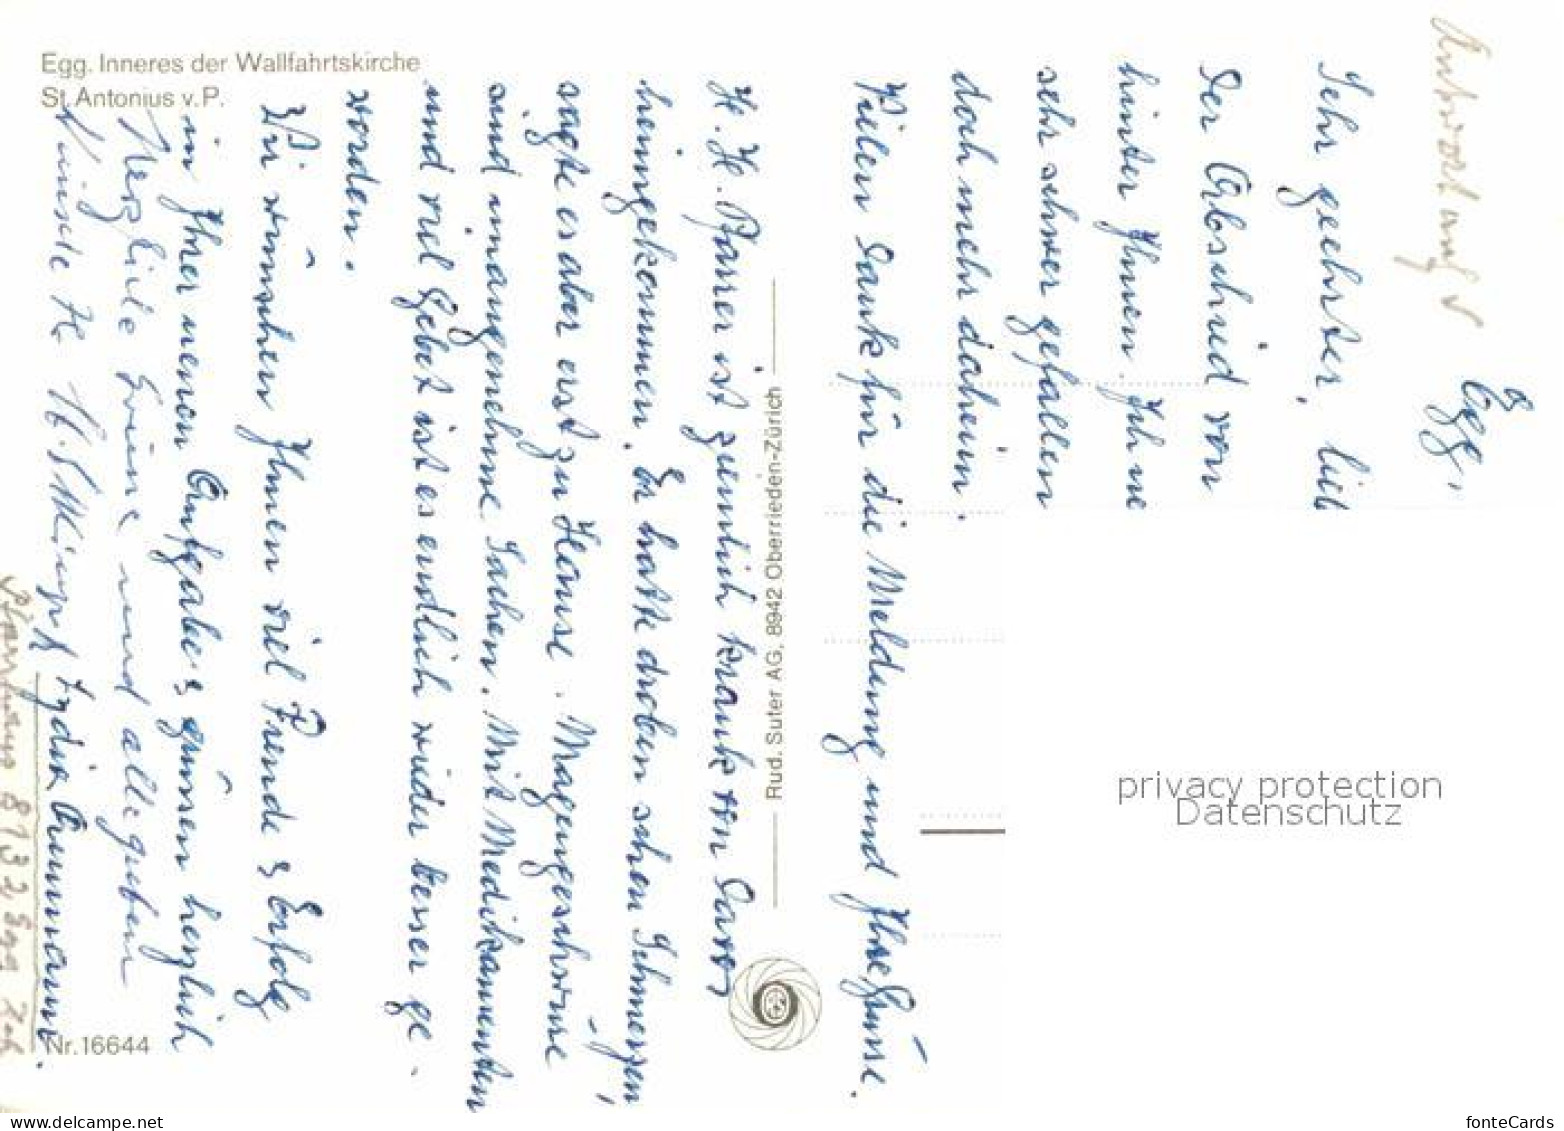 Egg. Inneres der Wallfahrtskirche
St. Antonius v. P.
Antwort auf
Egg,
Sehr geehrter, lieb
Der Abschied von
hinter Ihnen. Ihne
sehr schwer gefallen
doch mehr daheim.
Vielen Dank für die Meldung und Ihre Grüsse.
H. H. Pfarrer ist ziemlich krank von Davos
heimgekommen. Er hatte droben schon Schmerzen,
sagte es aber erst zu Hause. Magengeschwüre
sind unangenehme Sachen. Mit Medikamenten
und viel Gebet ist es endlich wieder besser ge-
worden.
Wir wünschen Ihnen viel Freude & Erfolg
in Ihrer neuen Aufgabe & grüssen herzlich
Herzliche Grüsse und alles
Lydia Ammann.
Pfarrhaus 8132 Egg Zch
Rud. Suter AG, 8942 Oberrieden-Zürich
Nr. 16644
privacy protection
Datenschutz
www.delcampe.net
fonteCards